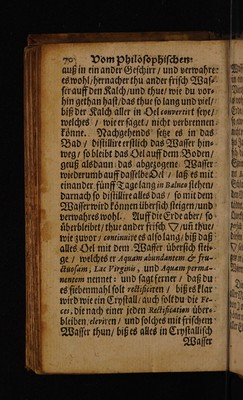 70 Vom Philosophischen
auß in ein ander Geschirr / und verwahre
es wohl / hernacher thu ander frisch Was-
ser auff den Kalch / und thue / wie du vor-
hin gethan hast / das thue so lang und viel /
biß der Kalch aller in Oel convertirt seye /
welches / wie er saget / nicht verbrennen
könne. Nachgehends setze es in das
Bad / distillire erstlich das Wasser hin-
weg / so bleibt das Oel auff dem Boden /
geuß alsdann das abgezogene Wasser
wiederumb auff dasselbe Oel / laß es mit
einander fünff Tage lang in Balneo stehen /
darnach so distillire alles das / so mit dem
Wasser wird können übersich steigen / und
verwahr es wohl. Auff die Erde aber / so
überbleibet / thue ander frisch 🜄 / uñ thue /
wie zuvor / continuire es also lang / biß daß
alles Oel mit dem Wasser übersich stei-
ge / welches er Aquam abundantem & fru-
ctuosam, Lac Virginis, und Aquam perma-
nentem nennet: und sagt ferner / daß du
es siebenmahl solt rectificiren / biß es klar
wird wie ein Crystall / auch solt du die Fe-
ces, die nach einer jeden Rectification über-
bleiben / eleviren / und solches mit frischem
Wasser thun / biß es alles in Crystallisch
Wasser